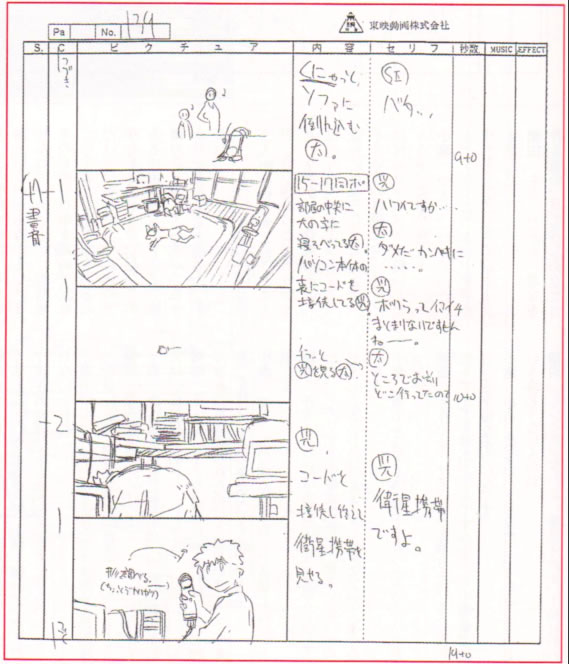 Pa No. 東映動画株式会社
S. C ピクチュア 内容 セリフ 秒数 MUSIC EFFECT
くにゃっと
ソファに
倒れ込む
太。
SE
バタ…
9+0
1
15-17同ポ
部屋の中央に
大の字に
寝そべってる太。
パソコン本体の
裏にコードを
接続してる光。
光
ハワイですか…
太
ダメだ
……。
光
ボクらってイマイチ
まとまりないですもん
ねー。
チラッと
光を見る太。
太
ところでおまえ
どこ行ってたの?
10+0
2
光、
コードを
接続し終えて
衛星携帯を
見せる。
光
衛星携帯
ですよ。
19+0